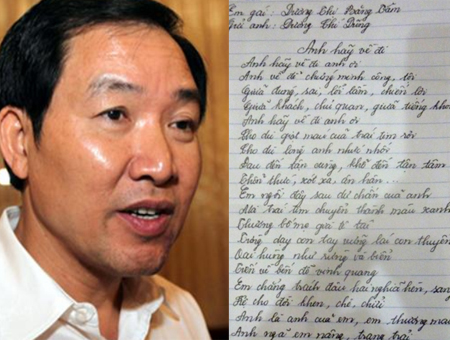 Em gái : Dương Thị Hoàng Vân
Gửi anh : Dương Chí Dũng
Anh hãy về đi
Anh hãy về đi anh ơi
Anh về để chứng minh công, tội
Giữa đúng, sai, lối lầm, chiến lợi
Giữa khách, chủ quan,
Anh hãy về đi anh ơi
Cho dù giọt máu của trái tim sôi
Cho dù lòng anh nhức nhối
Đau đến tận cùng, khổ đến tận tâm
Thổn thức, xót xa, ân hận...
Em ngồi đây sau dù chân của anh
Mà trái tim chuyển thành màu xanh
Thương bố mẹ già tê tái
Trông dạy con tay vững lái con thuyền
Oai hùng như sông và biển
Tiến về bến đỗ vinh quang
Em chẳng trách đâu hai nghĩa hèn, sang
Để cho đời khen, chê, chửi
Anh là anh của em, em thương
Anh ngã em nâng, trang trải